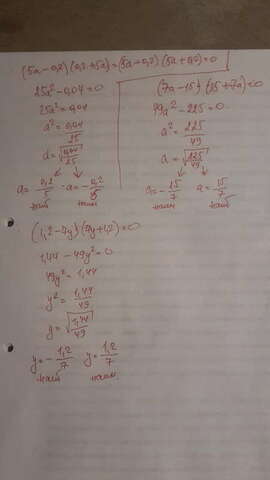 (5a-0,2)(0,2+5a)=(5a-0,2)(5a+0,2)=0
25a²-0,04=0
25a²=0,04
a²=0,04/25
a=√0,04/25
a=-0,2/5 a=0,2/5
наим наиб
(7a-15)(15+7a)=0
49a²-225=0
a²=225/49
a=√225/49
a=-15/7 a=15/7
наим наиб
(1,2-7y)(7y+1,2)=0
1,44-49y²=0
49y²=1,44
y²=1,44/49
y=√1,44/49
y=-1,2/7 y=1,2/7
наиб наим